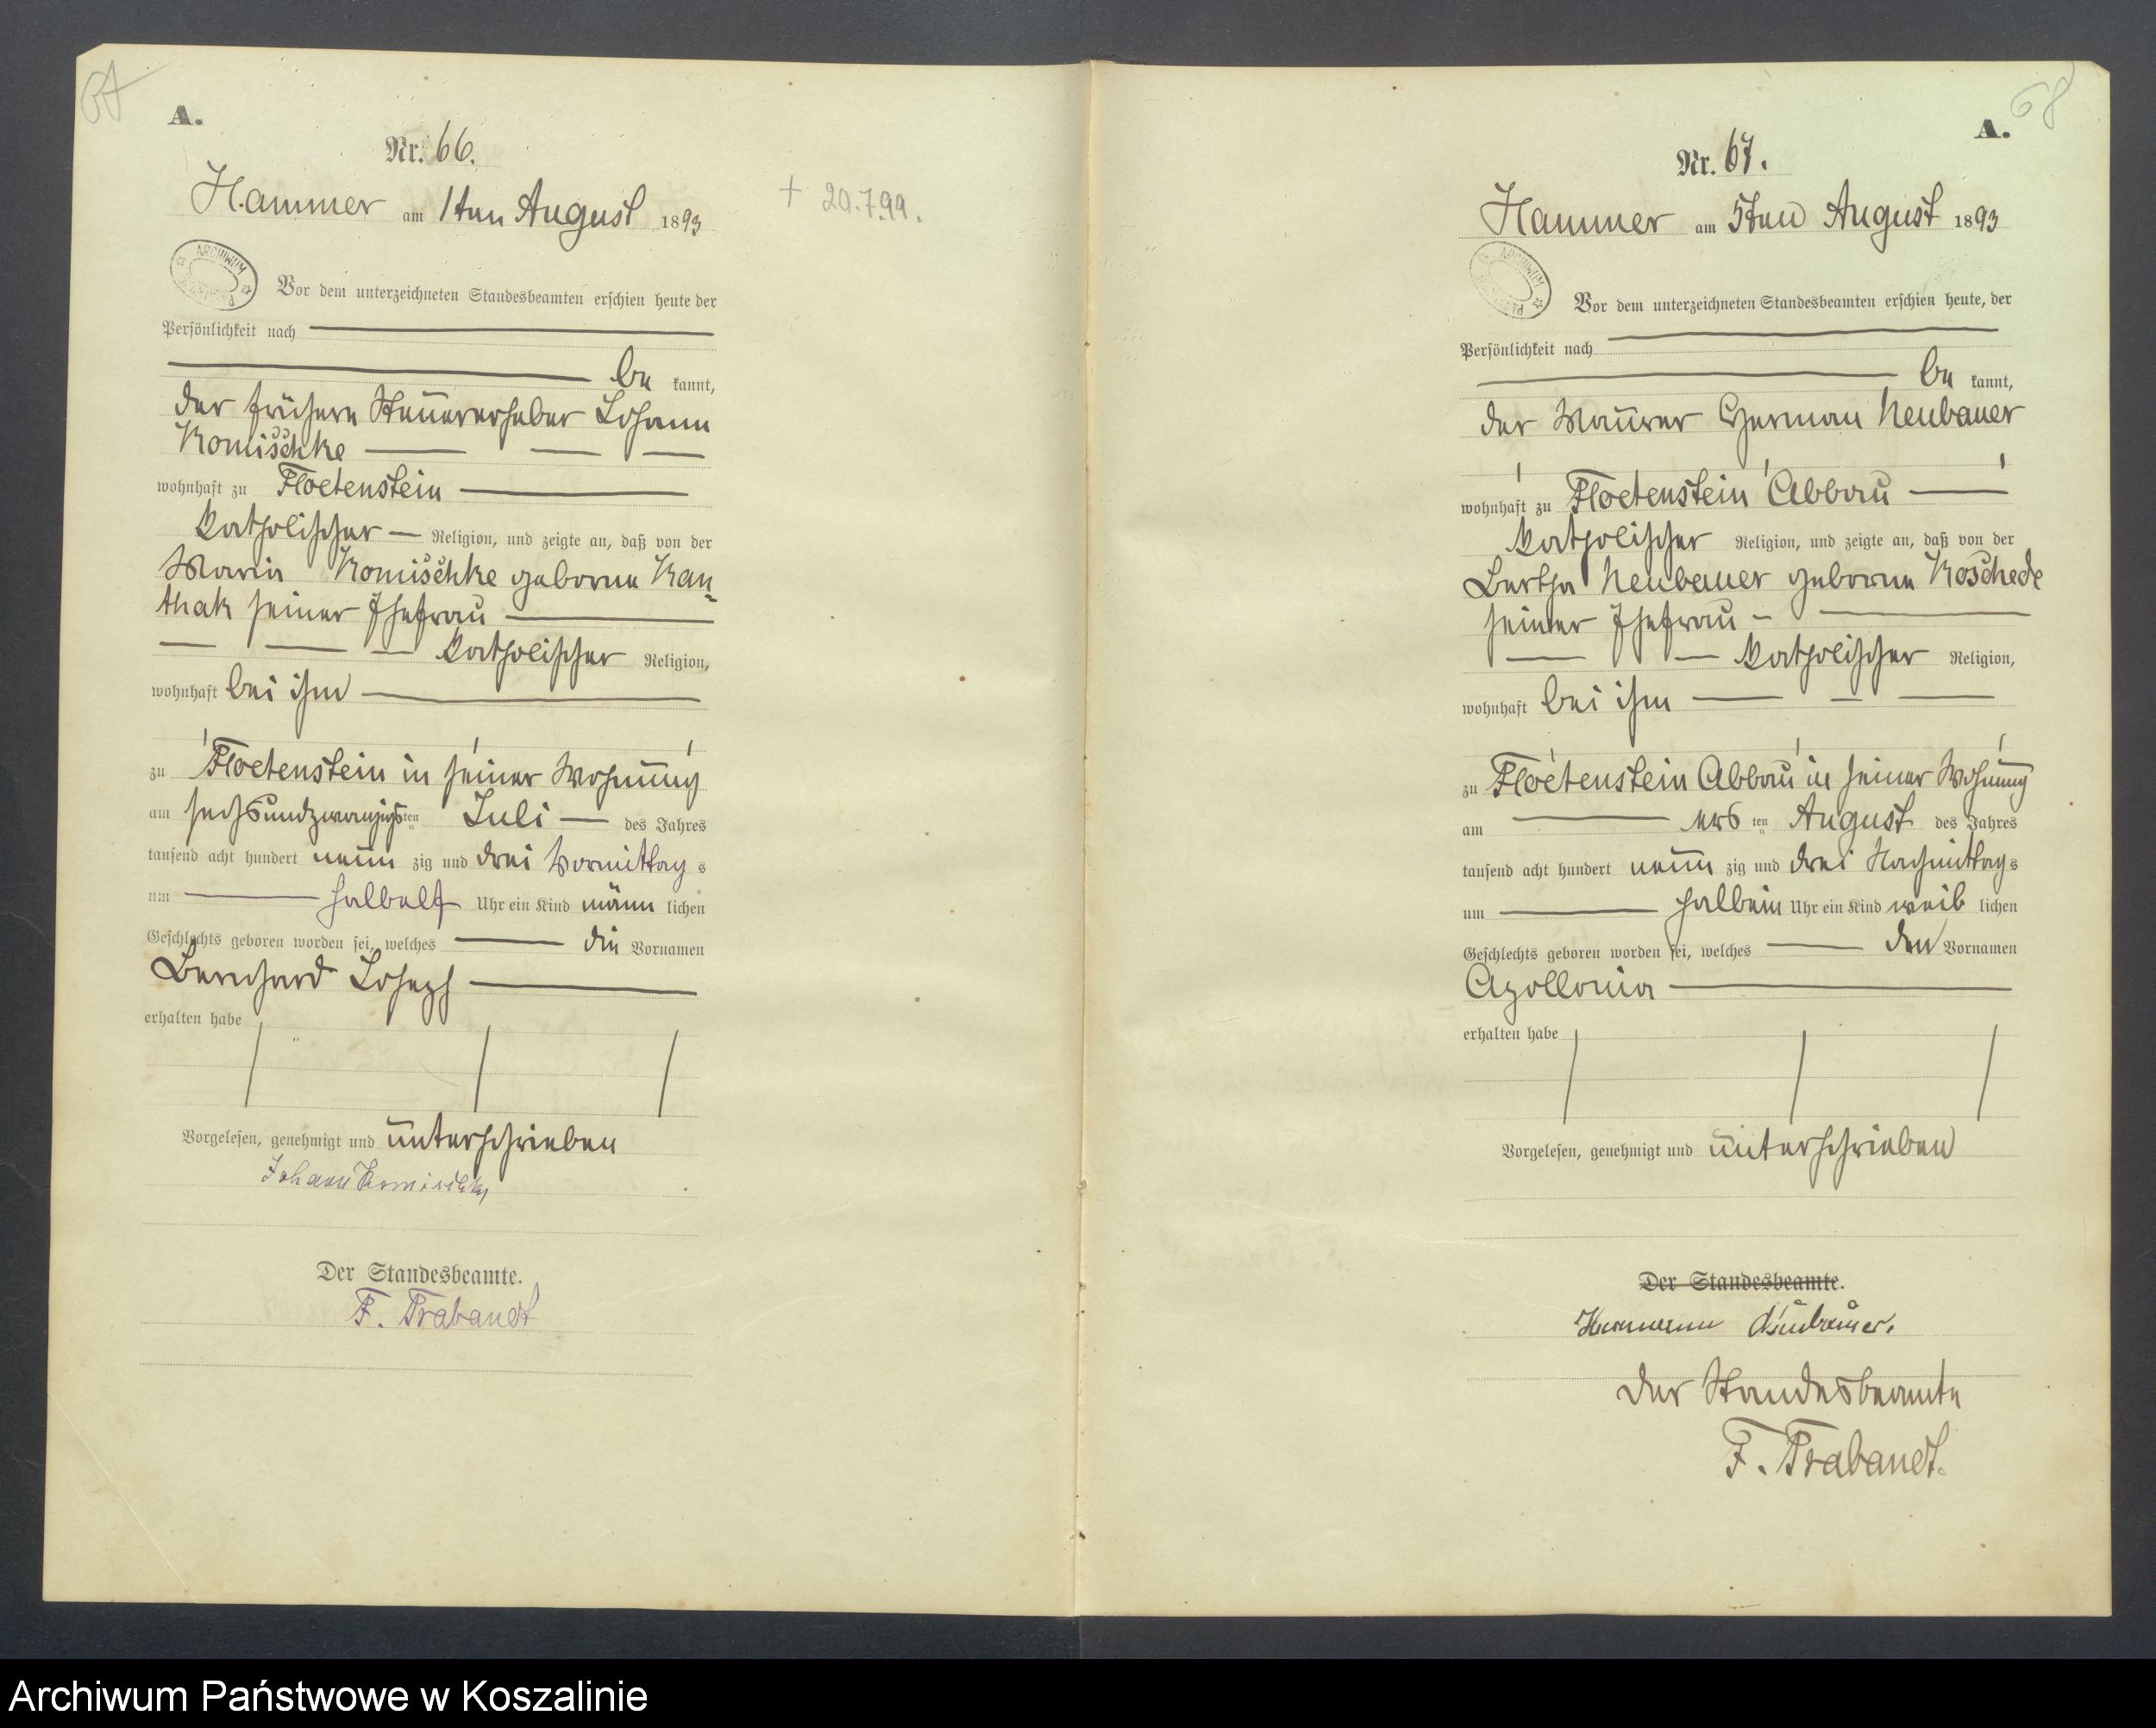 67
A.
Nr. 66.
Hammer am 1ten August 1893
+ 20.7.99.
ARCHIWUM
Vor dem unterzeichneten Standesbeamten erschien heute der
Persönlichkeit nach
be kannt,
der frühere Steuererheber Johann
Komischke
wohnhaft zu Floetenstein
katholischer Religion, und zeigte an, daß von der
Maria Komischke geborne Kan=
thak seiner Ehefrau
katholischer Religion,
wohnhaft bei ihm
zu Floetenstein in seiner Wohnung
am sechsundzwanzigsten Juli des Jahres
tausend acht hundert neun zig und drei Vormittag s
um halbelf Uhr ein Kind männ lichen
Geschlechts geboren worden sei, welches die Vornamen
Bernhard Joseph
erhalten habe
Vorgelesen, genehmigt und unterschrieben
Johann Komischke
Der Standesbeamte.
F. Trabandt
68
A.
Nr. 67.
Hammer am 5ten August 1893
ARCHIWUM
Vor dem unterzeichneten Standesbeamten erschien heute, der
Persönlichkeit nach
be kannt,
der Maurer Herman Neubauer
wohnhaft zu Floetenstein Abbau
katholischer Religion, und zeigte an, daß von der
Bertha Neubauer geborne Koschede
seiner Ehefrau
katholischer Religion,
wohnhaft bei ihm
zu Floetenstein Abbau in seiner Wohnung
am ers ten August des Jahres
tausend acht hundert neun zig und drei Nachmittag s
um halbein Uhr ein Kind weib lichen
Geschlechts geboren worden sei, welches den Vornamen
Apollonia
erhalten habe
Vorgelesen, genehmigt und unterschrieben
Der Standesbeamte.
Hermann Neubauer.
Der Standesbeamte
F. Trabandt.
Archiwum Państwowe w Koszalinie